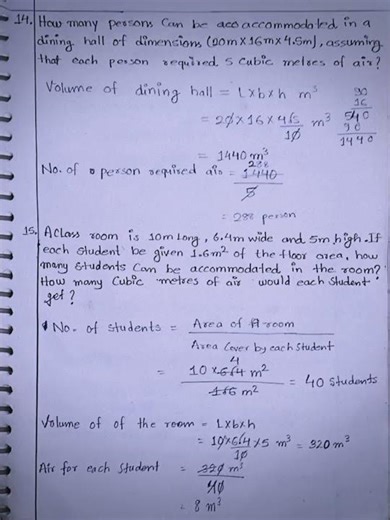 14. How many persons Can be accommodated in a
dining hall of dimensions (20m×16m×4.5m), assuming
that each person required 5 Cubic metres of air?
Volume of dining hall = L×b×h m³
= 20×16×45/10 m³
90
16
540
90
1440
= 1440 m³
288
No. of person required air = 1440/5
= 288 person
15. A Class room is 10m long, 6.4m wide and 5m high. If
each student be given 1.6m² of the floor area, how
many students Can be accommodated in the room?
How many Cubic metres of air would each Student
get?
No. of students = Area of room / Area Cover by each Student
4
= 10 × 6.4 m² / 1.6 m² = 40 Students
Volume of of the room = L×b×h
= 10×64/10×5 m³ = 320 m³
Air for each student = 320 m³/40
= 8 m³